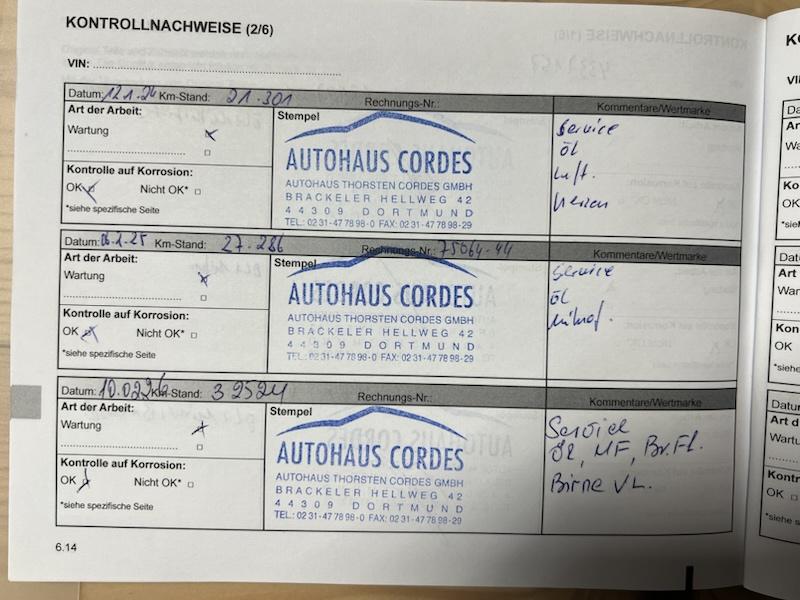 KONTROLLNACHWEISE (2/6)
VIN:
Datum: 12.1.24 Km-Stand: 21.301 Rechnungs-Nr.: Kommentare/Wertmarke
Art der Arbeit:
Wartung
Kontrolle auf Korrosion:
OK Nicht OK*
*siehe spezifische Seite
Stempel
AUTOHAUS CORDES
AUTOHAUS THORSTEN CORDES GMBH
BRACKELER HELLWEG 42
44309 DORTMUND
TEL.: 02 31-47 78 98-0 FAX: 02 31-47 78 98-29
Service
Öl
Luft.
Datum: 06.2.25 Km-Stand: 27.286 Rechnungs-Nr.: 75064-44 Kommentare/Wertmarke
Art der Arbeit:
Wartung
Kontrolle auf Korrosion:
OK Nicht OK*
*siehe spezifische Seite
Stempel
AUTOHAUS CORDES
AUTOHAUS THORSTEN CORDES GMBH
BRACKELER HELLWEG 42
44309 DORTMUND
TEL.: 02 31-47 78 98-0 FAX: 02 31-47 78 98-29
Service
Öl
Datum: 10.02.26 Km-Stand: 32524 Rechnungs-Nr.: Kommentare/Wertmarke
Art der Arbeit:
Wartung
Kontrolle auf Korrosion:
OK Nicht OK*
*siehe spezifische Seite
Stempel
AUTOHAUS CORDES
AUTOHAUS THORSTEN CORDES GMBH
BRACKELER HELLWEG 42
44309 DORTMUND
TEL.: 02 31-47 78 98-0 FAX: 02 31-47 78 98-29
Service
Öl, MF, Br.Fl.
Birne VL.
6.14